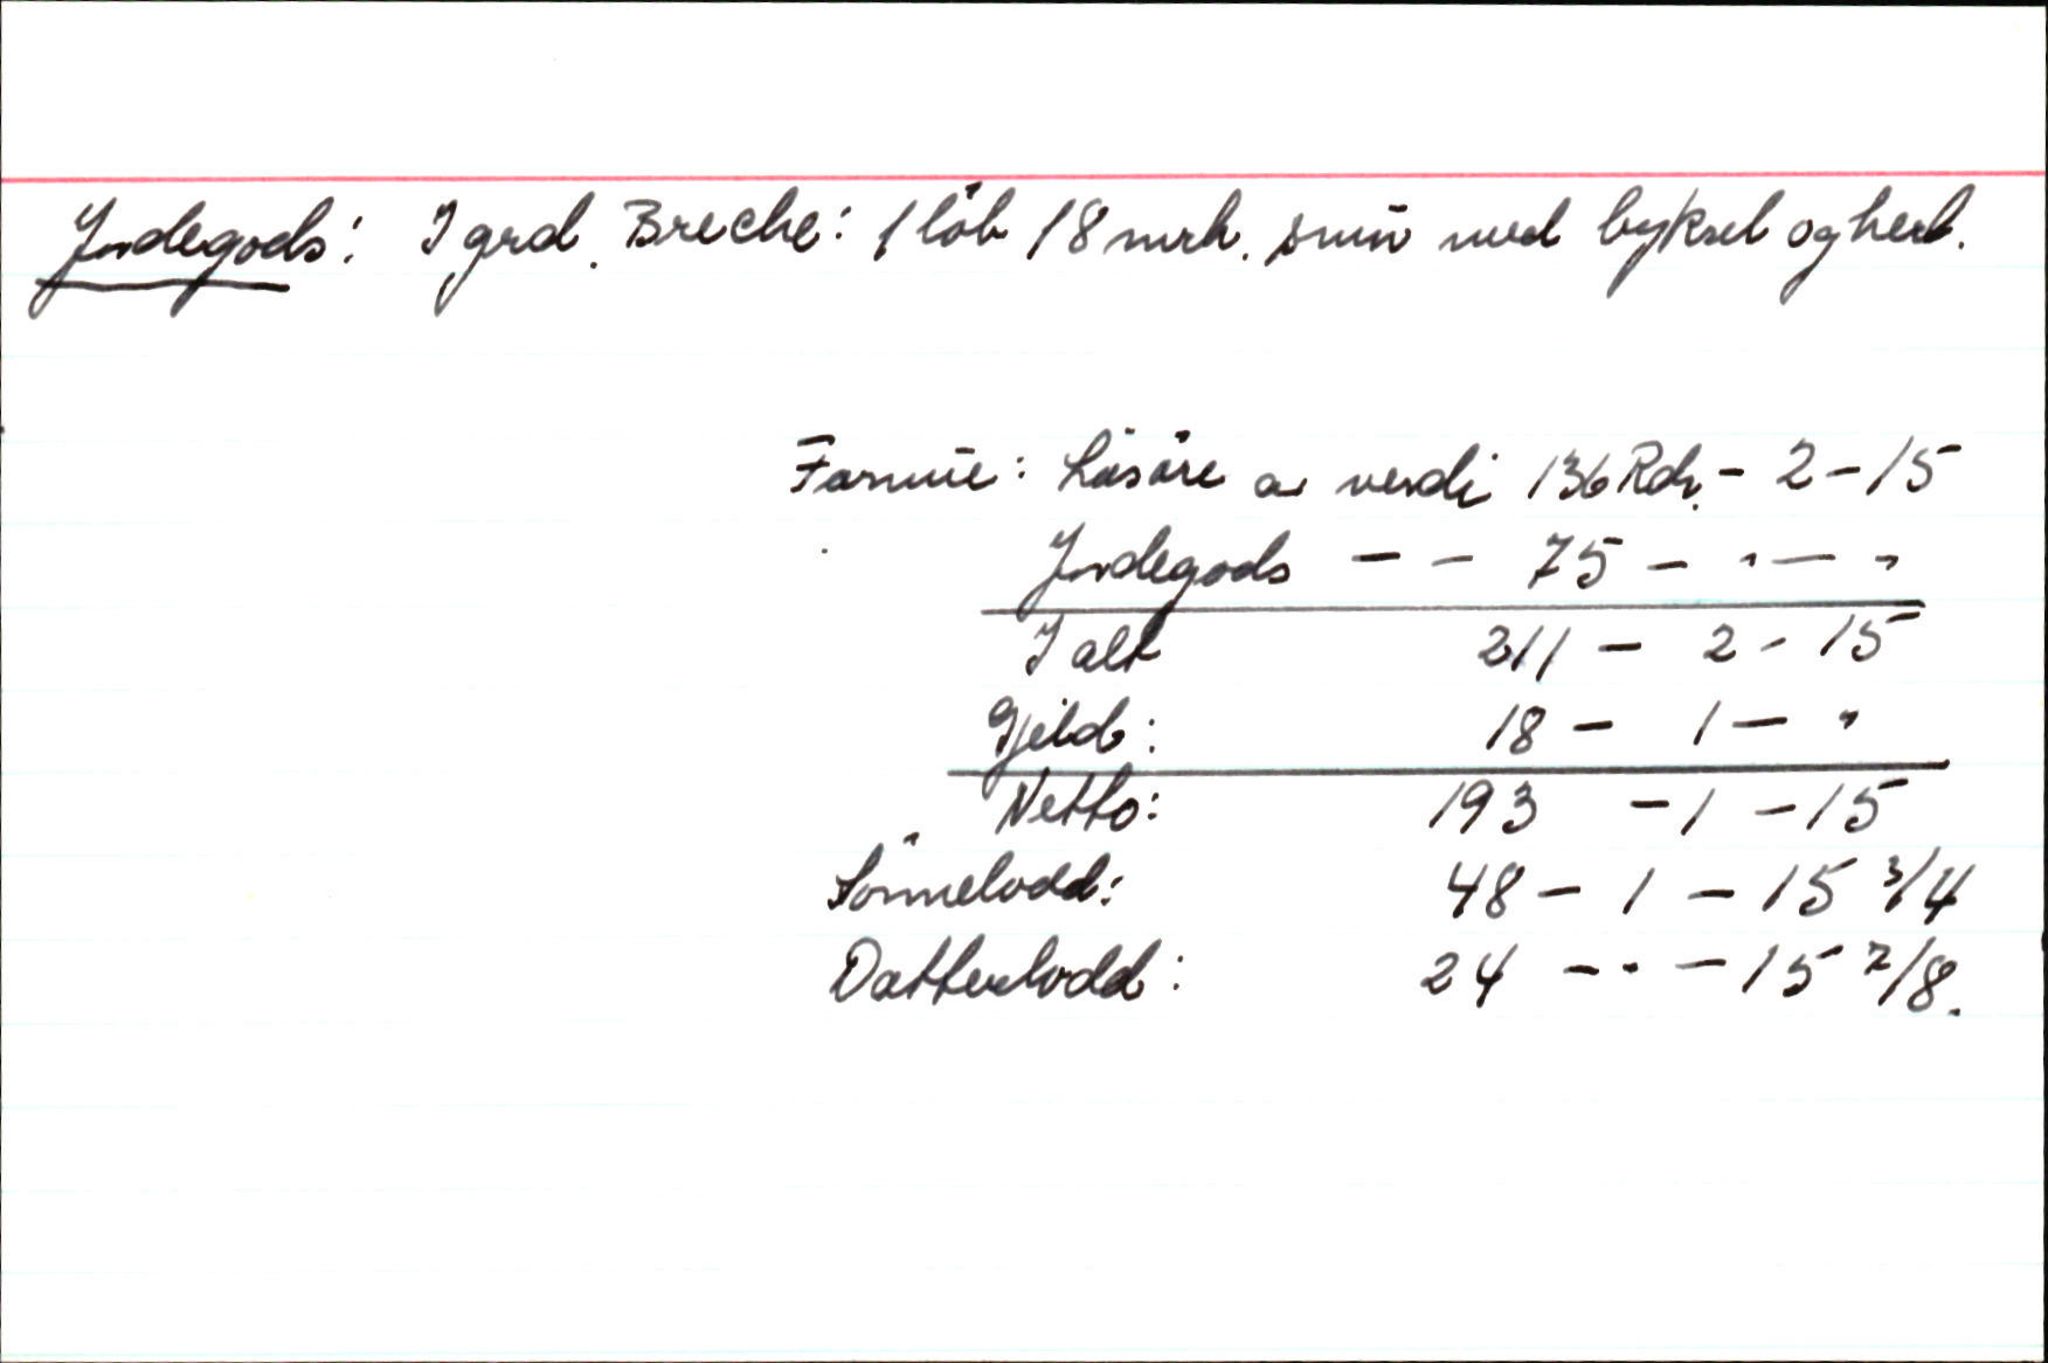 Jordegods: I grd. Breche: 1 löb 18 mrk. smör med byksel og herl.
Formue: Lösöre av verdi 136 Rdr. - 2 - 15
Jordegods - - 75 - " - "
I alt 211 - 2 - 15
Gjeld: 18 - 1 - "
Netto: 193 - 1 - 15
Sönnelodd: 48 - 1 - 15 3/4
Datterlodd: 24 - " - 15 7/8.